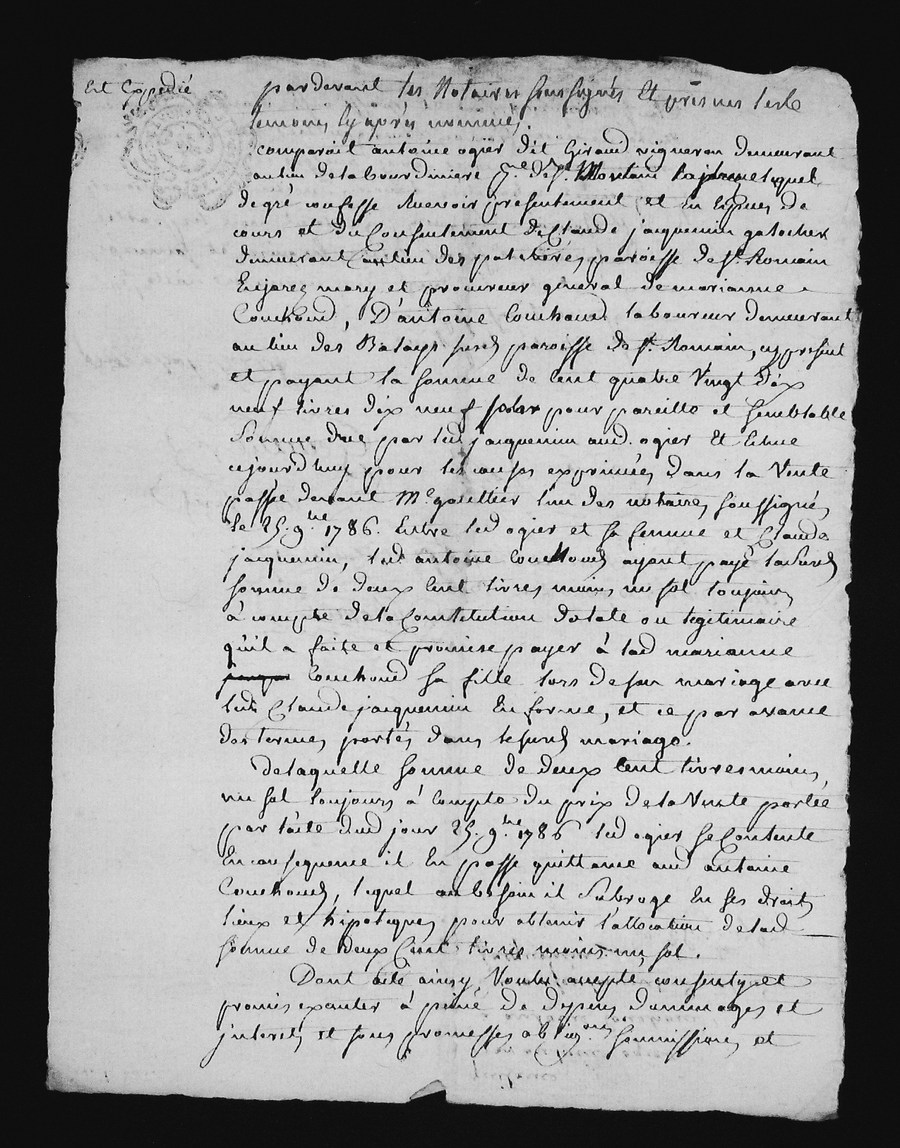 Est Expedié
pardevant les Notaires soussignés Et presens les
temoins cy après nommés
comparait antoine ogier dit Giraud vigneron demeurant
au lieu de la bourdiniere lequel
de gré confesse Recevoir presentement et En Espèces de
cours et du Consentement de Claude jacquemin galocher
demeurant au lieu des patehères paroisse de st. Romain
En jarez mary et procureur general de marianne
Couchoud, D'antoine Couchoud laboureur demeurant
au lieu des Balays susd paroisse de st. Romain, cy present
et payant la somme de Cent quatre Vingt Dix
neuf livres dix neuf sols pour pareille et semblable
somme due par led jacquemin aud. ogier Et Echue
cejourd'huy pour les causes exprimées dans la Vente
passée devant Me gaultier l'un des notaires soussignés
le 25. 9.bre 1786. Entre led ogier et sa femme et Claude
jacquemin, led antoine Couchoud ayant payé la susd
somme de deux Cent livres moins un sol toujours
à compte de la Constitution dotale ou legitimaire
qu'il a faite et promise payer à lad marianne
Couchoud sa fille lors de son mariage avec
led Claude jacquemin En forme, et ce par avance
des termes portés dans le susd mariage.
De laquelle somme de Deux Cent livres moins
un sol toujours à Compte du prix de la Vente portée
par l'acte dud jour 25. 9.bre 1786 led ogier se Contente
En consequence il En passe quittance aud antoine
Couchoud, lequel au besoin il Subroge En ses droits
lieux et hipoteques pour obtenir l'allocation de lad
somme de Deux Cent livres moins un sol.
Dont acte ainsy Voulu accepté consenty et
promis executer à peine de depens dommages et
interets et sous promesses obligons soumissions et